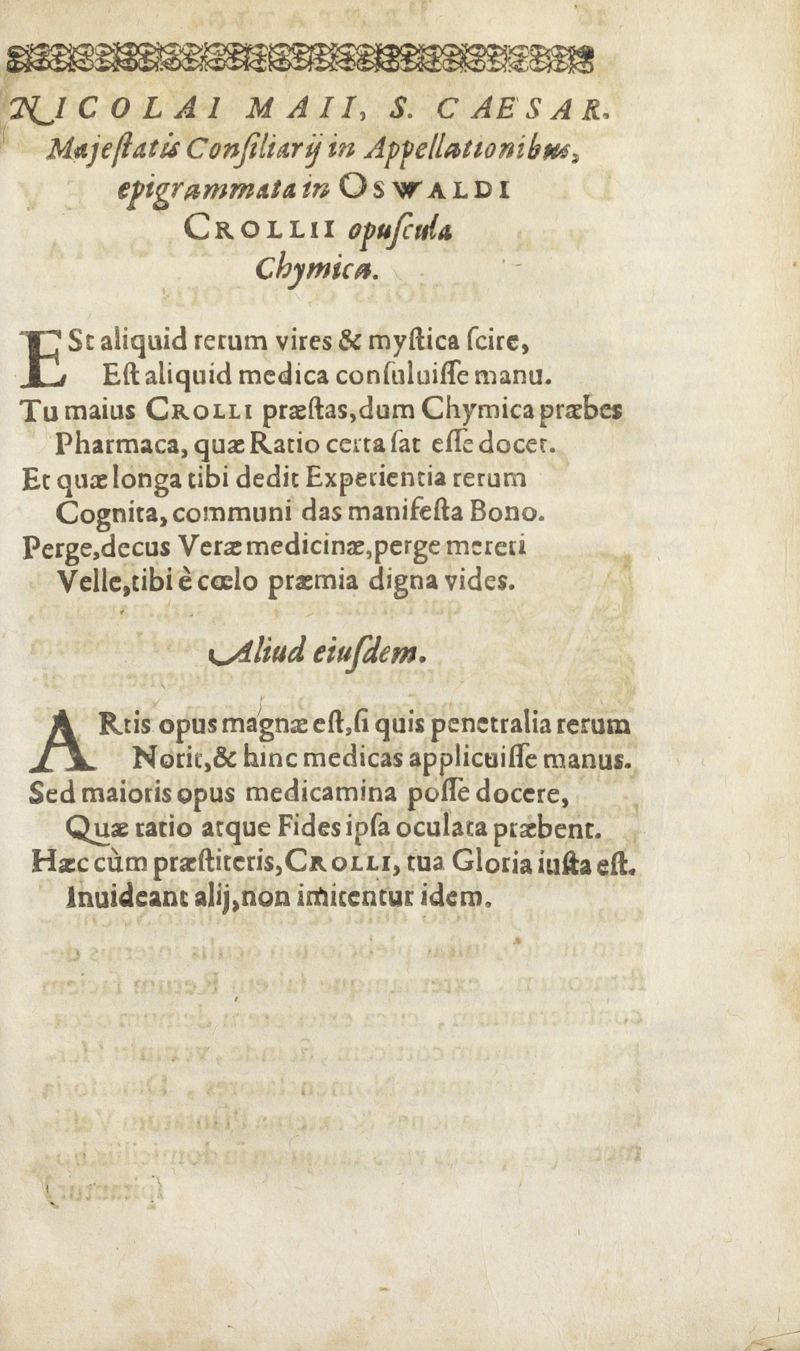 NICOLAI MAII, S. CAESAR.
Majeſtatis Conſiliarij in Appellationibus,
epigrammata in OSWALDI
CROLLII opuſcula
Chymica.
ESt aliquid rerum vires & myſtica ſcire,
Eſt aliquid medica conſuluiſſe manu.
Tu maius CROLLI præſtas, dum Chymica præbes
Pharmaca, quæ Ratio certa ſat eſſe docet.
Et quæ longa tibi dedit Experientia rerum
Cognita, communi das manifeſta Bono.
Perge, decus Veræ medicinæ, perge mereri
Velle, tibi è cœlo præmia digna vides.
Aliud eiuſdem.
ARtis opus magnæ eſt, ſi quis penetralia rerum
Norit, & hinc medicas applicuiſſe manus.
Sed maioris opus medicamina poſſe docere,
Quæ ratio atque Fides ipſa oculata præbent.
Hæc cùm præſtiteris, CROLLI, tua Gloria iuſta eſt.
Inuideant alij, non imitentur idem.